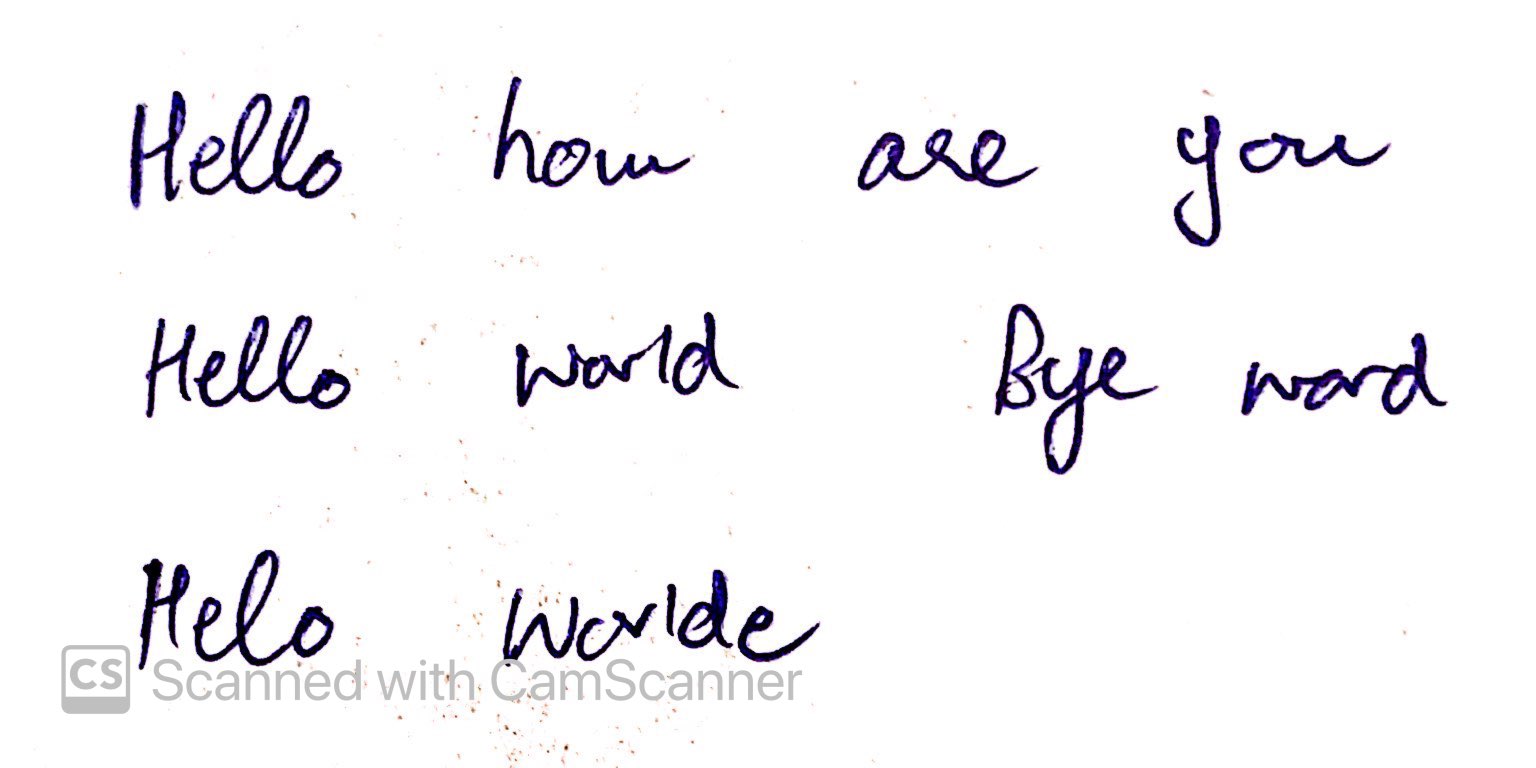 Hello how are you
Hello world Bye word
Helo Worlde
CS Scanned with CamScanner